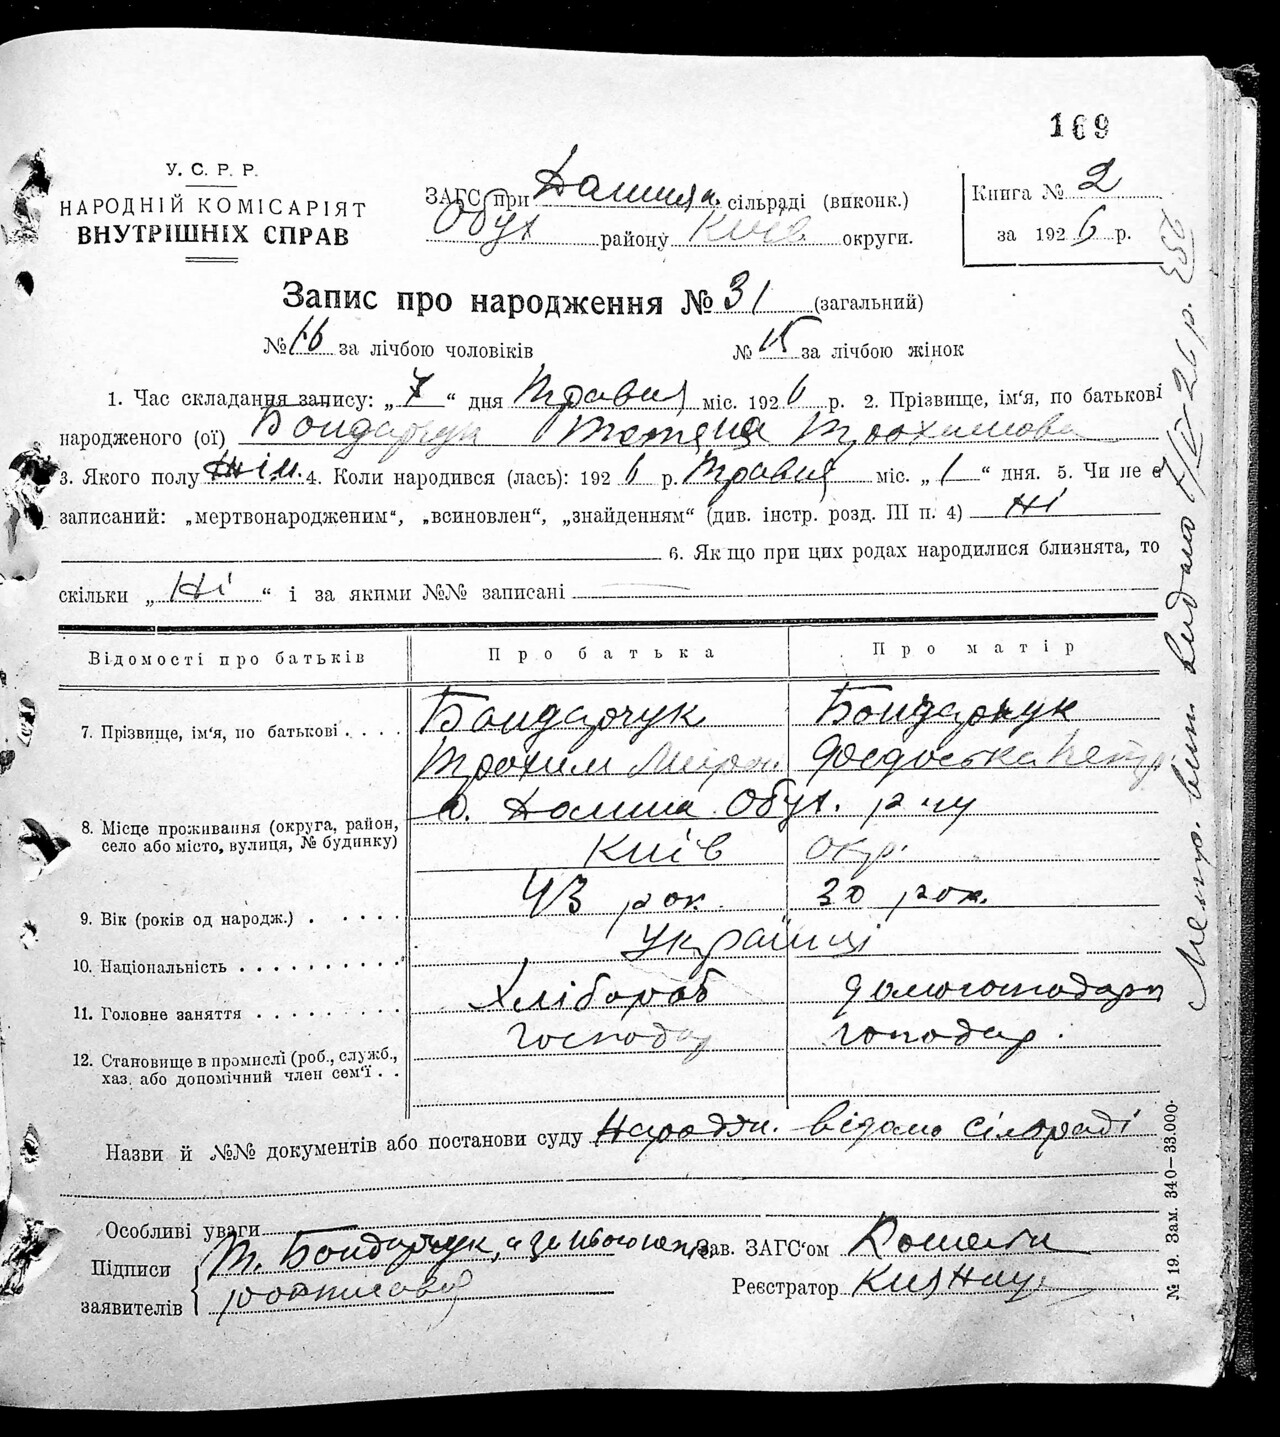 169
У. С. Р. Р.
НАРОДНІЙ КОМІСАРІЯТ
ВНУТРІШНІХ СПРАВ
ЗАГС при сільраді (виконк.)
Обух району Київ округи.
Книга № 2
за 1926 р.
Запис про народження № 31 (загальний)
№ 16 за лічбою чоловіків № 15 за лічбою жінок
1. Час складання запису: „ 7 “ дня Травня міс. 1926 р. 2. Прізвище, ім'я, по батькові
народженого (ої) Бондарчук Тетяна Трохимова
3. Якого полу жін. 4. Коли народився (лась): 1926 р. Травня міс. „ 1 “ дня. 5. Чи не є
записаний: „мертвонародженим“, „всиновлен“, „знайденням“ (див. інстр. розд. III п. 4) Ні
6. Якщо при цих родах народилися близнята, то
скільки „ Ні “ і за якими №№ записані
Відомості про батьків Про батька Про матір
7. Прізвище, ім'я, по батькові . . . . Бондарчук Бондарчук
Трохим Мирон. Федоська Петр
8. Місце проживання (округа, район, село або місто, вулиця, № будинку) с. Долина Обух. р-ну
Київ окр.
9. Вік (років од народж.) . . . . . 43 рок. 30 рок.
10. Національність . . . . . . . . . . Українці
11. Головне заняття . . . . . . . . . Хлібороб домогосподарн
12. Становище в промислі (роб., служб., хаз. або допомічний член сем'ї . . господар господар.
Назви й №№ документів або постанови суду Народж. відомо сілъраді
Особливі уваги
Підписи заявителів Т. Бондарчук, а за
Зав. ЗАГС'ом
Реєстратор
№ 19. Зам. 340—33.000.
Метр. вип. видано 7/V-26 р.